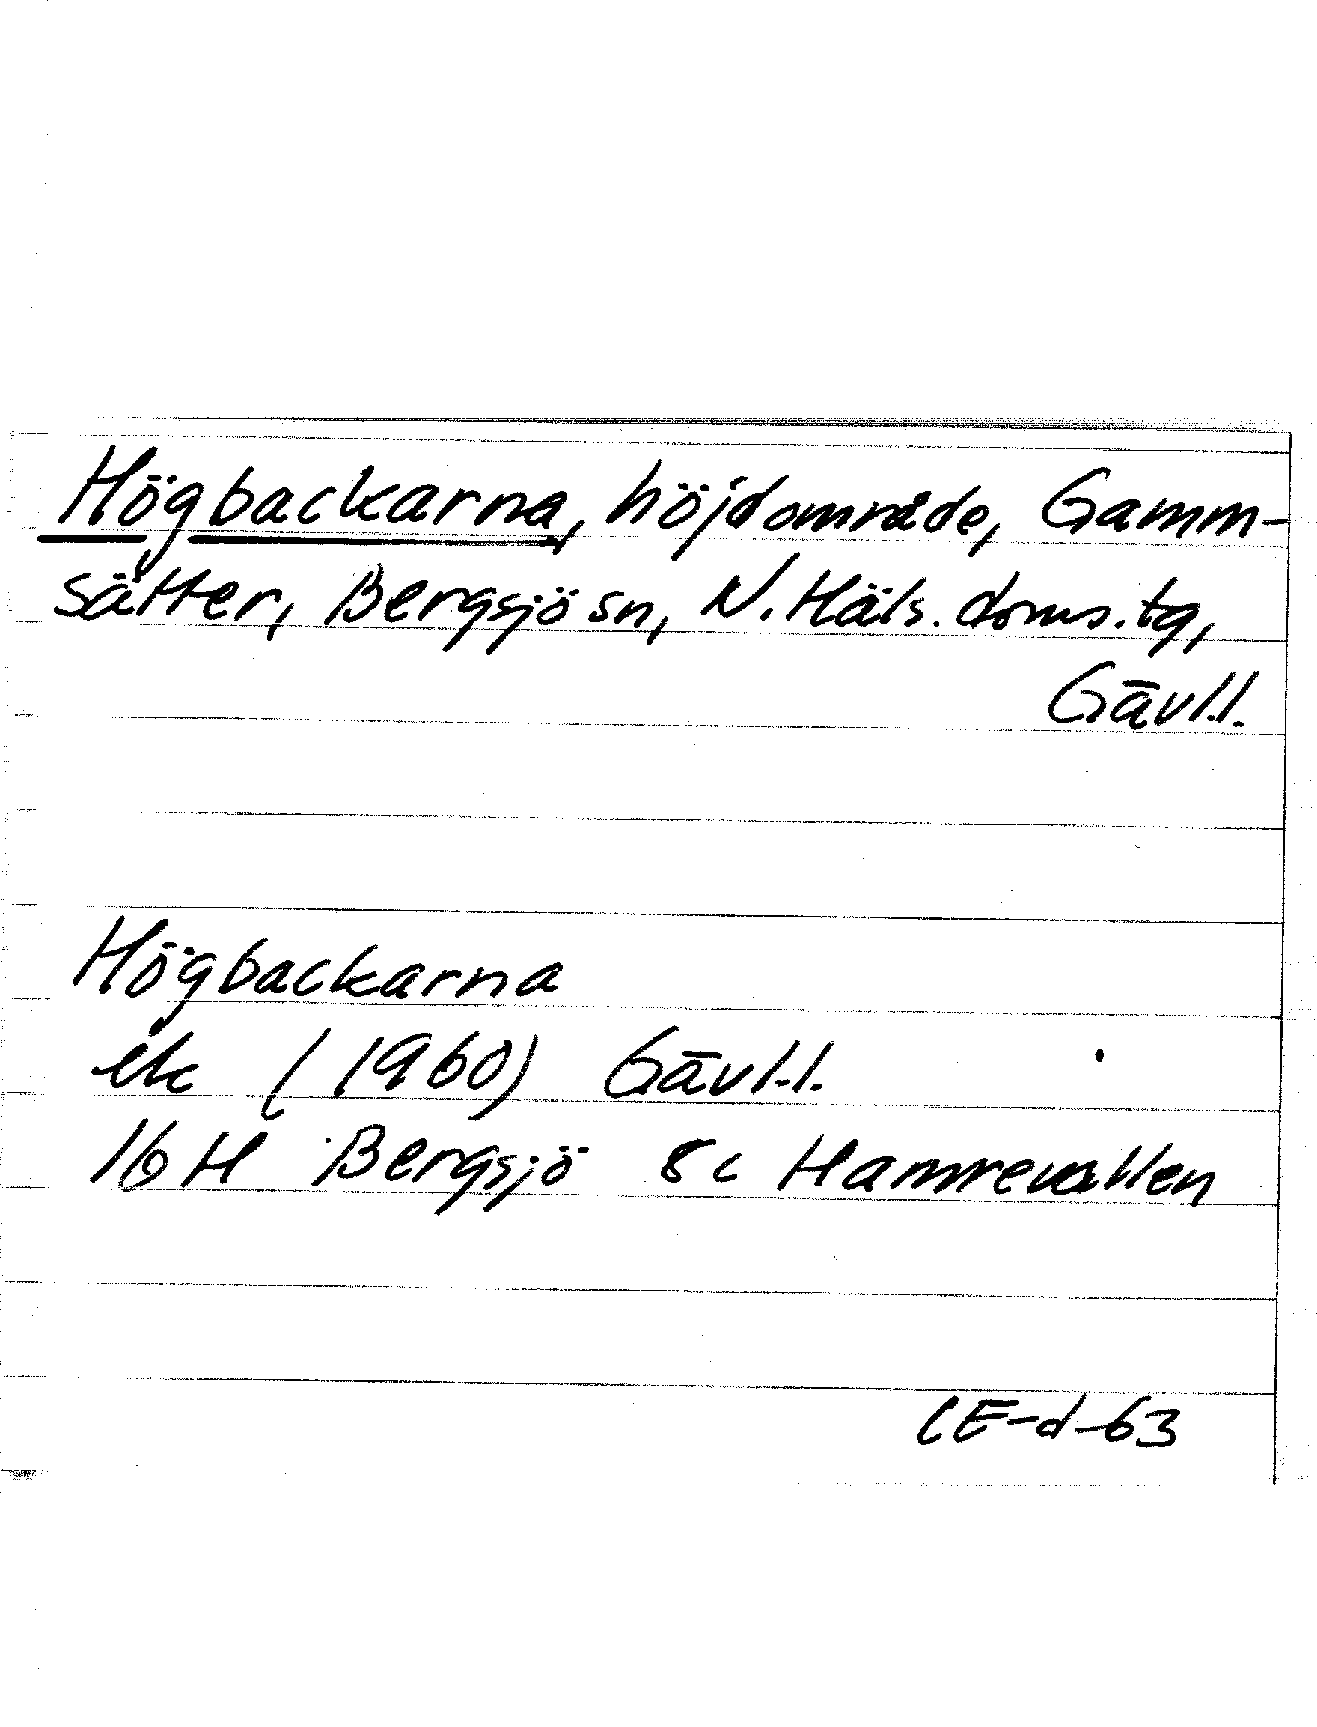 Högbackarna, höjdområde, Gamm-
sätter, Bergsjö sn, N. Häls. doms. tg,
Gävl.l.
Högbackarna
ek (1960) Gävl.l.
16 H Bergsjö 8c Hamrevallen
CE-d-63